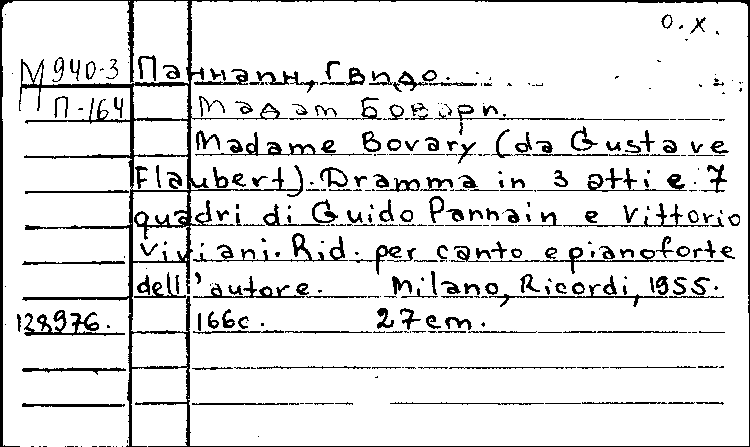 О.Х.
М940-3 Паннаин, Гвидо.
П-164 Мадам Бовари.
Madame Bovary (da Gustave
Flaubert). Dramma in 3 atti e 7
quadri di Guido Pannain e Vittorio
Viviani. Rid. per canto e pianoforte
dell'autore. Milano, Ricordi, 1955.
128976. 166с. 27cm.